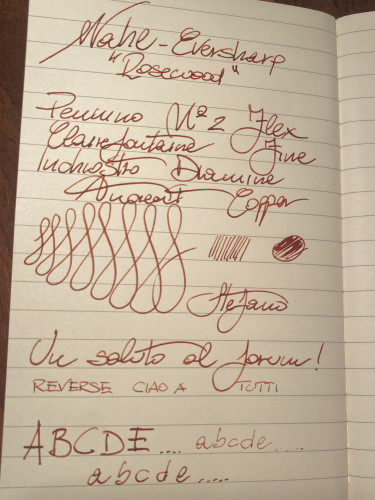 Wahl-Eversharp
"Rosewood"
Pennino Nº2 Flex
Clairefontaine Fine
Inchiostro Diamine
Ancient Copper
Stefano
Un saluto al forum!
REVERSE CIAO A TUTTI
ABCDE.... abcde.....
abcde.....